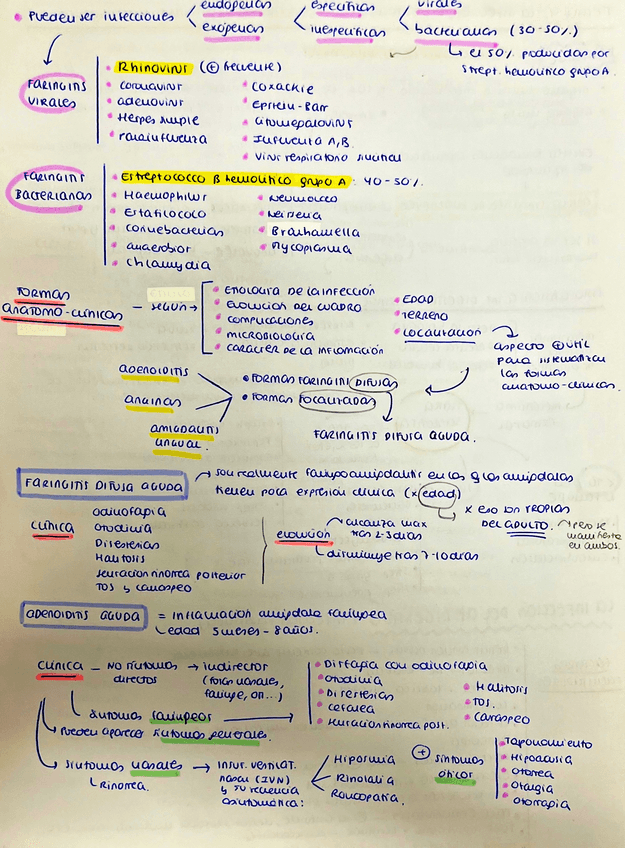 endógenas específicas virales
• Pueden ser infecciones
exógenas inespecíficas bacterianas (30-50%)
↳ el 50% producidas por
Strept. hemolítico grupo A.
FARINGITIS VIRALES
• Rhinovirus (⊕ frecuente)
• coronavirus • Coxackie
• adenovirus • Epstein-Barr
• Herpes simple • Citomegalovirus
• Parainfluenza • Influenza A, B.
• Virus respiratorio sincitial
FARINGITIS BACTERIANAS
• Estreptococo B hemolítico grupo A: 40-50%.
• Haemophilus • Neumococo
• Estafilococo • Neisseria
• Corinebacterias • Branhamella
• anaerobios • Mycoplasma
• Chlamydia
FORMAS
ANATOMO-CLÍNICAS – SEGÚN →
• ETIOLOGÍA DE LA INFECCIÓN • EDAD
• EVOLUCIÓN DEL CUADRO • TERRENO
• COMPLICACIONES • LOCALIZACIÓN
• MICROBIOLOGÍA
• CARÁCTER DE LA INFLAMACIÓN
aspecto ⊕ útil
para sistematizar
las formas
anatomo-clínicas.
ADENOIDITIS
ANGINAS
AMIGDALITIS
LINGUAL
• FORMAS FARINGITIS DIFUSAS
• FORMAS FOCALIZADAS
FARINGITIS DIFUSA AGUDA.
FARINGITIS DIFUSA AGUDA → son realmente faringoamigdalitis en las q las amígdalas
tienen poca expresión clínica (x edad)
↳ x eso son PROPIAS
DEL ADULTO. → pero se
manifiesta
en ambos.
CLÍNICA
Odinofagia
Otodinia
Disestesias
Halitosis
Sensación rinorrea posterior
Tos y carraspeo
evolución
alcanza max
tras 2-3 días
disminuye tras 7-10 días
ADENOIDITIS AGUDA = inflamación amígdala faríngea
↳ edad 5 meses - 8 años.
CLÍNICA – NO síntomas → indirectos
directos (fosas nasales,
faringe, ...)
↳ Síntomas faríngeos →
• Disfagia con odinofagia
• Otodinia • Halitosis
• Disestesias • Tos.
• Cefalea • Carraspeo
• Sensación rinorrea post.
→ Pueden aparecer síntomas generales.
→ síntomas nasales → insuf. ventilat.
↳ Rinorrea. nasal (IVN)
y su secuencia
sintomática:
Hiposmia
Rinolalia
Roncopatía.
⊕ síntomas
óticos
• Taponamiento
• Hipoacusia
• Otorrea
• Otalgia
• Otorragia